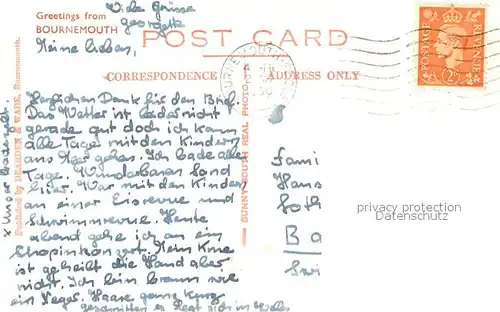 Viele Grüsse
Georgette
Greetings from
BOURNEMOUTH
Meine lieben,
POST CARD
CORRESPONDENCE
ADDRESS ONLY
BOURNEMOUTH
POSTAGE
REVENUE
2½D
Herzlichen Dank für den Brief.
Das Wetter ist leider nicht
gerade gut doch ich kann
alle Tage mit den Kindern
ans Meer gehen. Ich bade alle
Tage. Wunderbaren Sand
hier. War mit den Kindern
an einer Eisrevue und
Schwimmrevue. Heute
abend gehe ich an ein
Chopinkonzert. Mein Knie
ist geheilt die Hand aber
nicht. Ich bin braun wie
ein Neger. Haare ganz kurz
geschnitten es legt sich in Wellen
x Unser Badezelt.
Published by DEARDEN & WADE, Bournemouth.
BUNNY SOUTH REAL PHOTO
Fami
Hans
Goth
Ba
Swi
privacy protection
Datenschutz